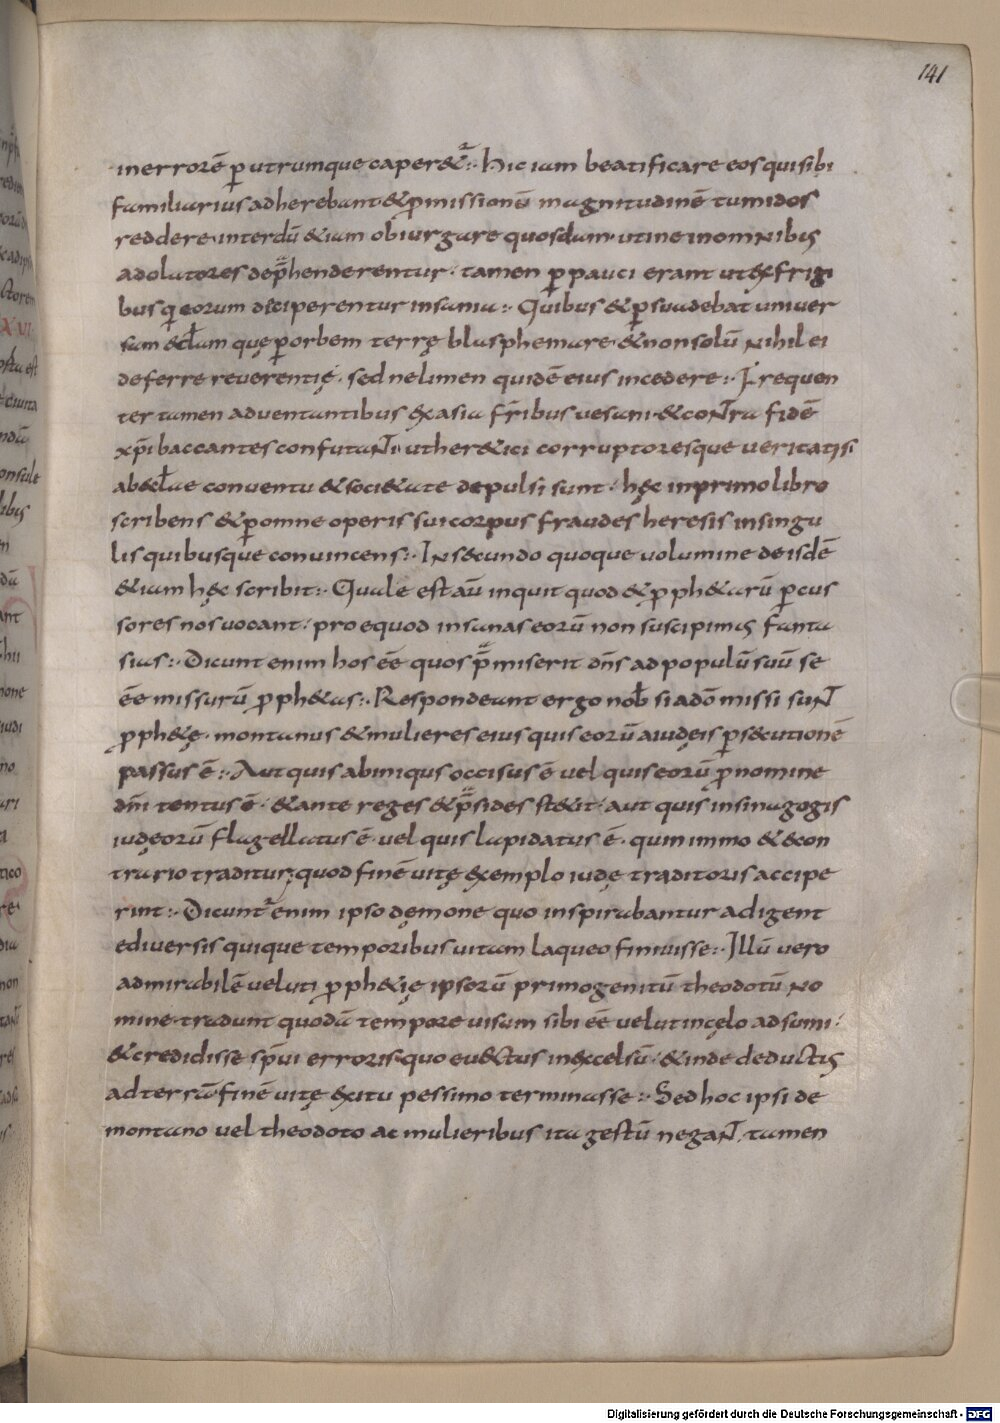 141
inerrorē ꝑutrumque caper&ᷓ:· hic iam beatificare eos quisibi
familiarius adherebant &ꝓmissionū magnitudinē tumidos
reddere· interdū &iam obiurgare quosdam· utine inomNibus
adolatores dep̄henderentur· tamen ꝑpauci erant ut exfrigi
bus q; eorum deciperentur insania:· Quibus &ꝑsuadebat univer
sam ęcl̄am quę ꝑorbem terrę blasphemare· &nonsolū Nihil ei
deferre reverentię· sed nelimen quidē eius incedere:· Frequen
ter tamen adventantibus exasia fr̄ibus vesani· &coNTra fidē
xp̄i baccantes confutaNT· uther&ici corruptoresque veritatis·
abecl̄ae conventu &soci&ate depulsi sunt· hęc inprimolibro
scribens &ꝑomne operis sui corpus fraudes heresis insingu
lis quibusque convincens:· INsecundo quoque volumine deisdē
&iam hęc scribit:· Quale est aū inquit quod &ꝓph&arū ꝑcus
sores nos vocant· pro eo quod insanas eorū non suscipimus fanta
sias:· Dicunt enim hos eē quos p̄miserit dn̄s adpopulū suū se
eē missurū ꝓph&as:· Respondeant ergo nob̄ siadō missi suNT
ꝓph&ę· montanus &mulieres eius quis eorū aiudęis ꝑsecutionē
passus ē:· Aut quis abiniqus occisus ē vel quis eorū ꝓnomine
dn̄i tentus ē· &ante reges &p̄sides st&it· aut quis insinagogis
iudęorū flagellatus ē· vel quis lapidatus ē· quin immo &econ
trario traditur· quod finē vitę exemplo iudę traditoris accipe
rint:· Dicunt᷑ enim ipso dęmone quo inspirabantur adigent
ediversis quique temporibus vitam laqueo finivisse:· Illū vero
admirabilē veluti ꝓph&ię ipsorū primogenitū theodotū No
mine· tradunt quodā tempore visum sibi eē velut incęlo adsumi·
&credidisse sp̄ui erroris· quo evectus inexcelsū· &inde deductus
adterrā finē vitę exitu pessimo terminasse:· Sed hoc ipsi de
montano vel theodoto ac mulieribus ita gestū negaNT· tamen
Digitalisierung gefördert durch die Deutsche Forschungsgemeinschaft - DFG